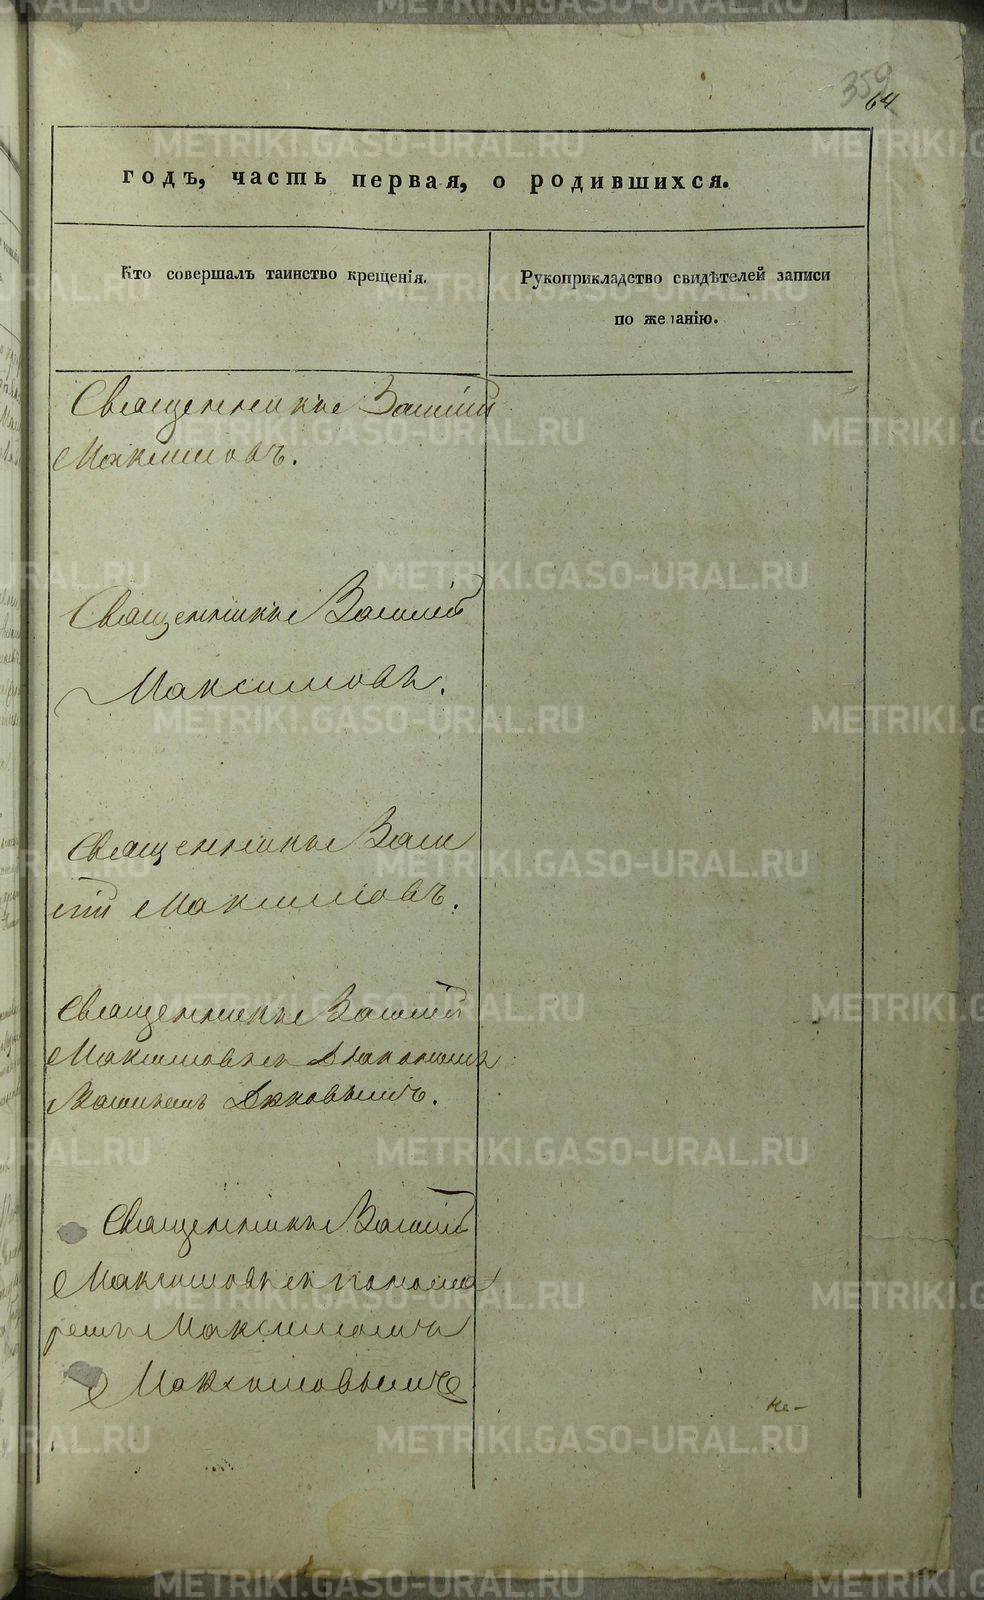 359
64
годъ, часть первая, о родившихся.
Кто совершалъ таинство крещенія.
Рукоприкладство свидѣтелей записи
по желанію.
Священникъ Василій
Максимовъ.
Священникъ Василій
Максимовъ.
Священникъ Васи
лій Максимовъ.
Священникъ Василій
Максимовъ съ Діакономъ
Василіемъ Дьковымъ.
Священникъ Василій
Максимовъ съ понома
ремъ Максимомъ
Максимовымъ
METRIKI.GASO-URAL.RU